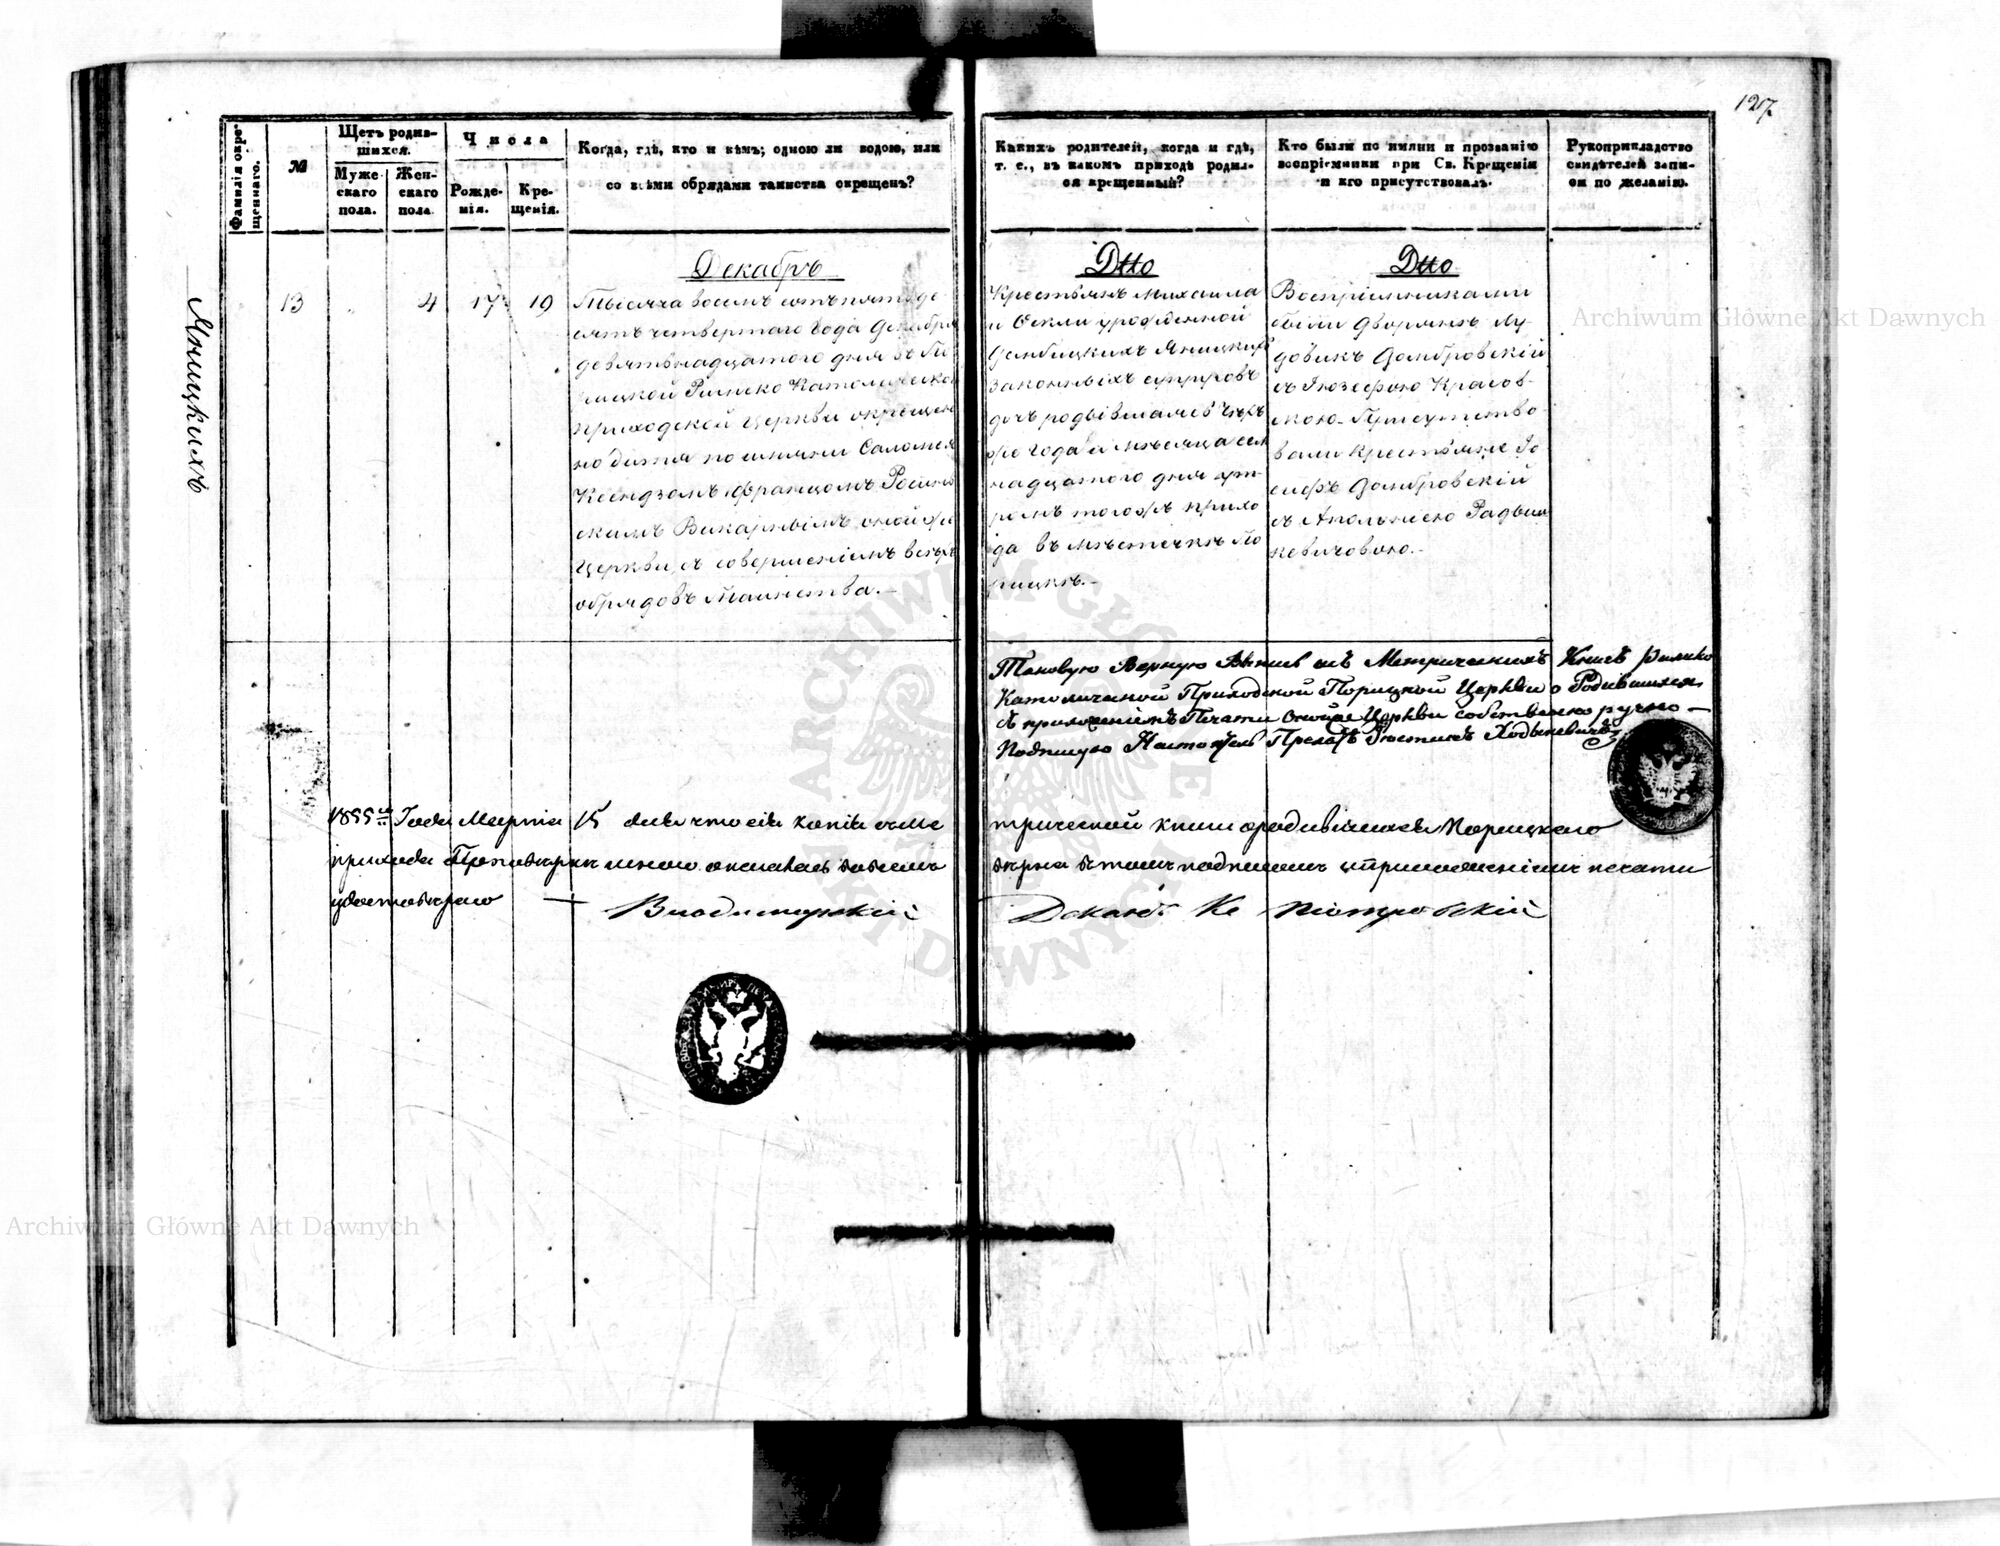 127
Фамилія окре-
щеннаго.
№
Щетъ родив-
шихся.
Муже-
скаго
пола.
Жен-
скаго
пола.
Числа
Рожде-
нія.
Кре-
щенія.
Когда, гдѣ, кто и кѣмъ; одною ли водою, или
со всѣми обрядами таинства окрещенъ?
Какихъ родителей, когда и гдѣ,
т. е., въ какомъ приходѣ родил-
ся крещенный?
Кто были по имяни и прозванію
воспріемники при Св. Крещеніи
и кто присутствовалъ.
Рукоприкладство
свидѣтелей запи-
си по желанію.
Яницкихъ
13
4
17
19
Декабрь
Тысяча восемъ сотъ пятьде-
сятъ четвертаго года Декабря
девятьнадцатого дня въ По
рицкой Римско Католической
приходской Церкви окрещен
но дитя по имяни Саломея
Ксендзомъ Францомъ
скимъ Викарнымъ оной же
Церкви, съ совершеніемъ всѣхъ
обрядовъ Таинства.-
Dtto
Крестьянъ Михаила
и Ѳекли урожденной
Яницкихъ
законныхъ супруговъ
дочь родывшаясь
года и мѣсяца сем
надцатого дня ут-
ромъ тогожъ прихо
да въ мѣстечкѣ По
рицкѣ.-
Dtto
Воспріемниками
были Дворянъ Лу-
довикъ Домбровскій
съ Іозефою Красов-
скою. Присутство-
вали крестьяне Іо
сифъ Домбровскій
съ Апольніею Радзи
кевичовою.-
Таковую Верную Выпись изъ Метрическихъ Книгъ Римско
Католической Приходской Порицкой Церкви о Родившихся
съ приложеніемъ Печати Онойже Церкви собственно ручно -
Подпишую Настоятель Прелатъ Іюстинъ Ходыкевичъ
1855го Года Марта 15 дня что сія копія съ ме
трической книги о родившихся Порицкаго
прихода Приповѣркѣ мною оказалась вовсемъ
вѣрна въ томъ подписомъ и приложеніемъ печати
удостовѣряю
Владимірскій
Деканъ Кс Піотровскій
Archiwum Główne Akt Dawnych
Archiwum Główne Akt Dawnych
ARCHIWUM GŁÓWNE AKT DAWNYCH